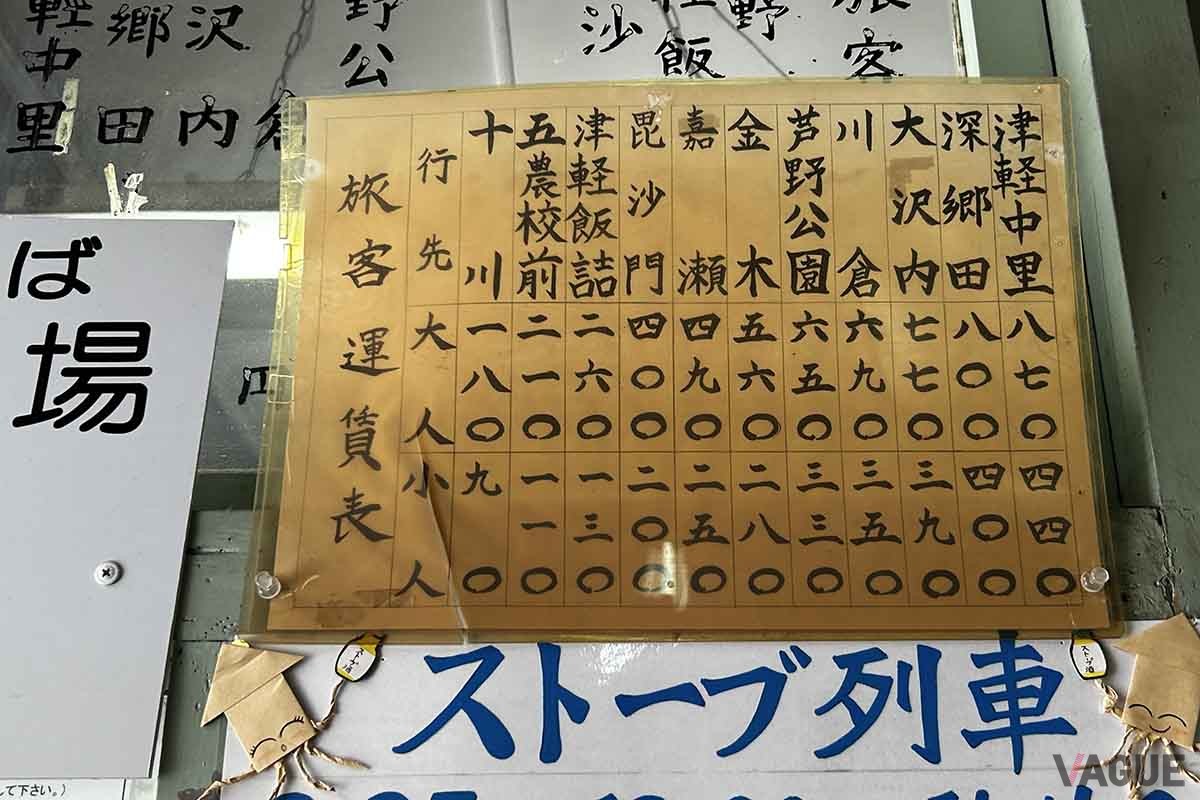 輕中里
郷田
沢内
野公
沙
飯
野
旅客
ば
場
旅客運賃表
行先 大人 小人
十川 一八〇 九〇
五農校前 二一〇 一一〇
津軽飯詰 二六〇 一三〇
毘沙門 四〇〇 二〇〇
嘉瀬 四九〇 二五〇
金木 五六〇 二八〇
芦野公園 六五〇 三三〇
川倉 六九〇 三五〇
大沢内 七七〇 三九〇
深郷田 八〇〇 四〇〇
津軽中里 八七〇 四四〇
ストーブ酒
ストーブ酒
ストーブ列車
して下さい。)
VAGUE